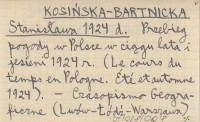 KOSIŃSKA-BARTNICKA
Stanisława 1924 d. Przebieg
pogody w Polsce w ciągu lata i
jesieni 1924 r. (Le cours du
temps en Pologne. Été et automne
1924). - Czasopismo Geogra-
ficzne (Lwów-Łódź-Warszawa)